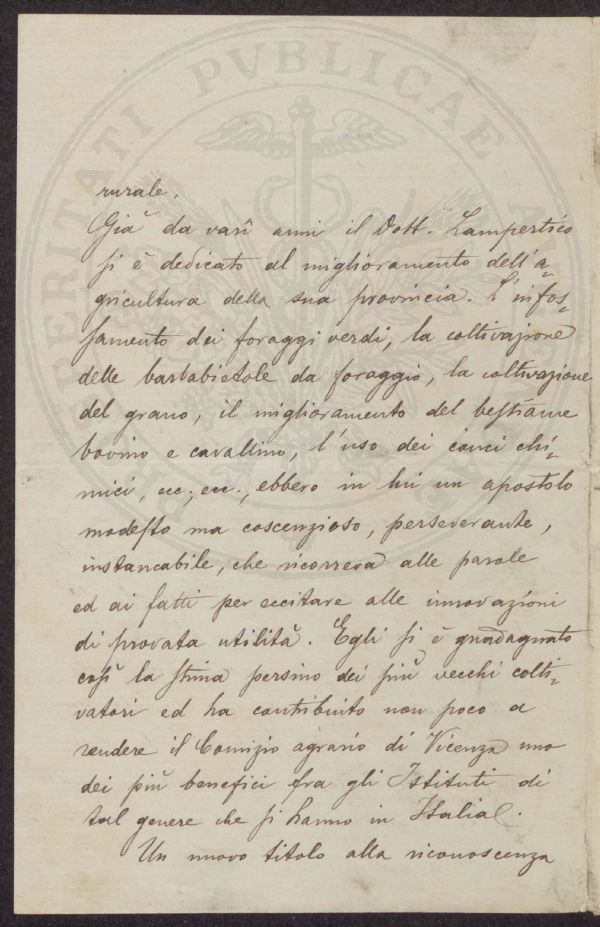 PVBLICAE
rurale.
Già da varî anni il Dott. Lampertico
si è dedicato al miglioramento dell'a=
gricultura della sua provincia. L'infos=
samento dei foraggi verdi, la coltivazione
delle barbabietole da foraggio, la coltivazione
del grano, il miglioramento del bestiame
bovino e cavallino, l'uso dei conci chi=
mici, ecc., ecc., ebbero in lui un apostolo
modesto ma coscenzioso, perseverante,
instancabile, che ricorreva alle parole
ed ai fatti per eccitare alle innovazioni
di provata utilità. Egli si è guadagnato
così la stima persino dei più vecchi colti=
vatori ed ha contribuito non poco a
rendere il Comizio agrario di Vicenza uno
dei più benefici fra gli Istituti di
tal genere che si hanno in Italia.
Un nuovo titolo alla riconoscenza